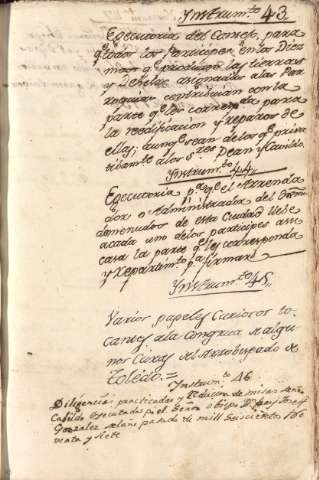 Ynstrum.to 43.
Executoria del Consejo, para
q.e todos los Partícipes en los Diez
mos q.e producen las tierras
y Debesas asignadas a las Par
roquias contribuian con la
parte q.e les corresponda para
la reedificacion y reparos de
ellas; aunq.e sean de los q.e priva
tibam.te a los S.res Dean y Cavildo.
Ynstrum.to 44.
Executoria p.a q.e el Arrenda
dor o Administrador del
de esta Ciudad lleve
a cada uno de los participes a su
casa la parte q.e les corresponda
y Repartim.to p.a firmar
Ynstrum.to 45.
Varios papeles curiosos to
cantes a la Congrua de algu
nos Curas del Arzobispado de
Toledo.=
Ynstrum.to 46
Diligencias practicadas y de misas
Cabildo executadas p.r el Señor Obispo D.n Josef
Gonzalez el año pasado de mill seiscientos
venta y siete